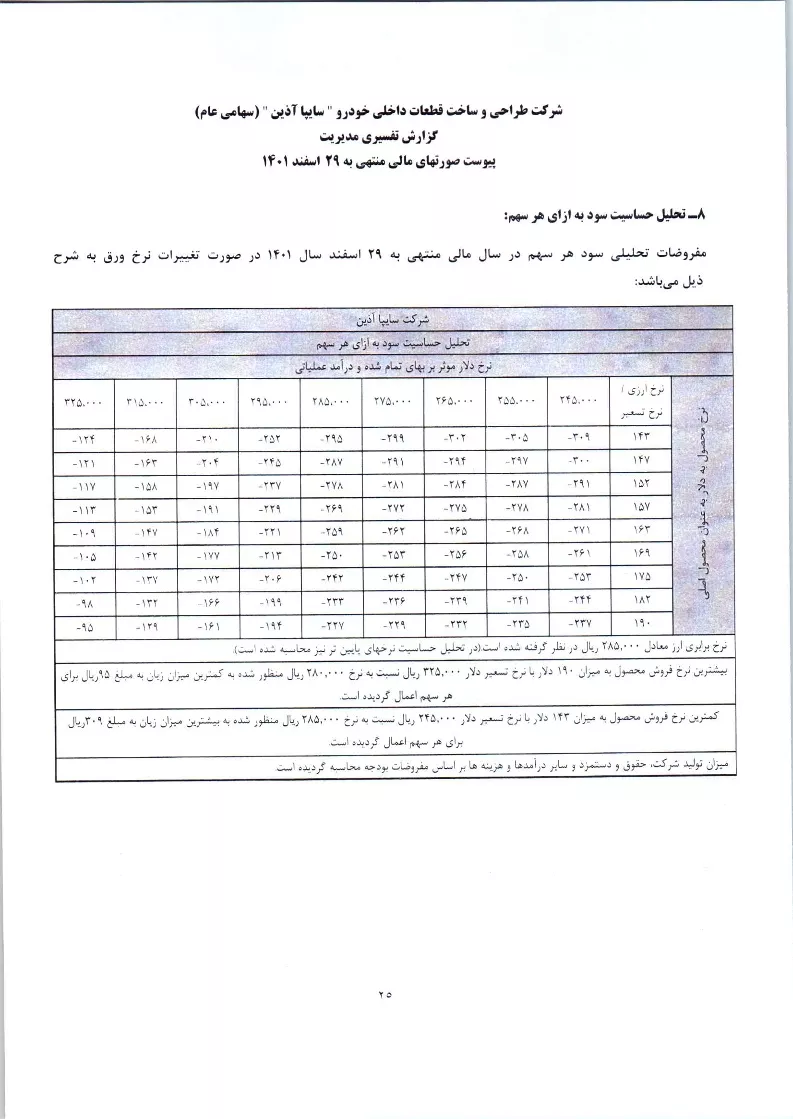 شرکت طراحی و ساخت قطعات داخلی خودرو " سایپا آذین " (سهامی عام)
گزارش تفسیری مدیریت
پیوست صورتهای مالی منتهی به ۲۹ اسفند ۱۴۰۱
۸ــ تحلیل حساسیت سود به ازای هر سهم:
مفروضات تحلیلی سود هر سهم در سال مالی منتهی به ۲۹ اسفند سال ۱۴۰۱ در صورت تغییرات نرخ ورق به شرح
ذیل می‌باشد:
شرکت سایپا آذین
تحلیل حساسیت سود به ازای هر سهم
نرخ دلار موثر بر بهای تمام شده و درآمد عملیاتی
نرخ محصول به دلار به عنوان محصول اصلی
نرخ ارزی / نرخ تسعیر ۲۴۵،۰۰۰ ۲۵۵،۰۰۰ ۲۶۵،۰۰۰ ۲۷۵،۰۰۰ ۲۸۵،۰۰۰ ۲۹۵،۰۰۰ ۳۰۵،۰۰۰ ۳۱۵،۰۰۰ ۳۲۵،۰۰۰
۱۴۳ -۳۰۹ -۳۰۵ -۳۰۲ -۲۹۹ -۲۹۵ -۲۵۲ -۲۱۰ -۱۶۸ -۱۲۴
۱۴۷ -۳۰۰ -۲۹۷ -۲۹۴ -۲۹۱ -۲۸۷ -۲۴۵ -۲۰۴ -۱۶۳ -۱۲۱
۱۵۲ -۲۹۱ -۲۸۷ -۲۸۴ -۲۸۱ -۲۷۸ -۲۳۷ -۱۹۷ -۱۵۸ -۱۱۷
۱۵۷ -۲۸۱ -۲۷۸ -۲۷۵ -۲۷۲ -۲۶۹ -۲۲۹ -۱۹۱ -۱۵۳ -۱۱۳
۱۶۳ -۲۷۱ -۲۶۸ -۲۶۵ -۲۶۲ -۲۵۹ -۲۲۱ -۱۸۴ -۱۴۷ -۱۰۹
۱۶۹ -۲۶۱ -۲۵۸ -۲۵۶ -۲۵۳ -۲۵۰ -۲۱۳ -۱۷۷ -۱۴۲ -۱۰۵
۱۷۵ -۲۵۳ -۲۵۰ -۲۴۷ -۲۴۴ -۲۴۲ -۲۰۶ -۱۷۲ -۱۳۷ -۱۰۲
۱۸۲ -۲۴۴ -۲۴۱ -۲۳۹ -۲۳۶ -۲۳۳ -۱۹۹ -۱۶۶ -۱۳۲ -۹۸
۱۹۰ -۲۳۷ -۲۳۵ -۲۳۲ -۲۲۹ -۲۲۷ -۱۹۴ -۱۶۱ -۱۲۹ -۹۵
نرخ برابری ارز معادل ۲۸۵،۰۰۰ ریال در نظر گرفته شده است.(در تحلیل حساسیت نرخهای پایین تر نیز محاسبه شده است).
بیشترین نرخ فروش محصول به میزان ۱۹۰ دلار با نرخ تسعیر دلار ۳۲۵،۰۰۰ ریال نسبت به نرخ ۲۸۰،۰۰۰ ریال منظور شده به کمترین میزان زیان به مبلغ ۹۵ریال برای
هر سهم اعمال گردیده است.
کمترین نرخ فروش محصول به میزان ۱۴۳ دلار با نرخ تسعیر دلار ۲۴۵،۰۰۰ ریال نسبت به نرخ ۲۸۵،۰۰۰ ریال منظور شده به بیشترین میزان زیان به مبلغ ۳۰۹ریال
برای هر سهم اعمال گردیده است.
میزان تولید شرکت، حقوق و دستمزد و سایر درآمدها و هزینه ها بر اساس مفروضات بودجه محاسبه گردیده است.
۲۵